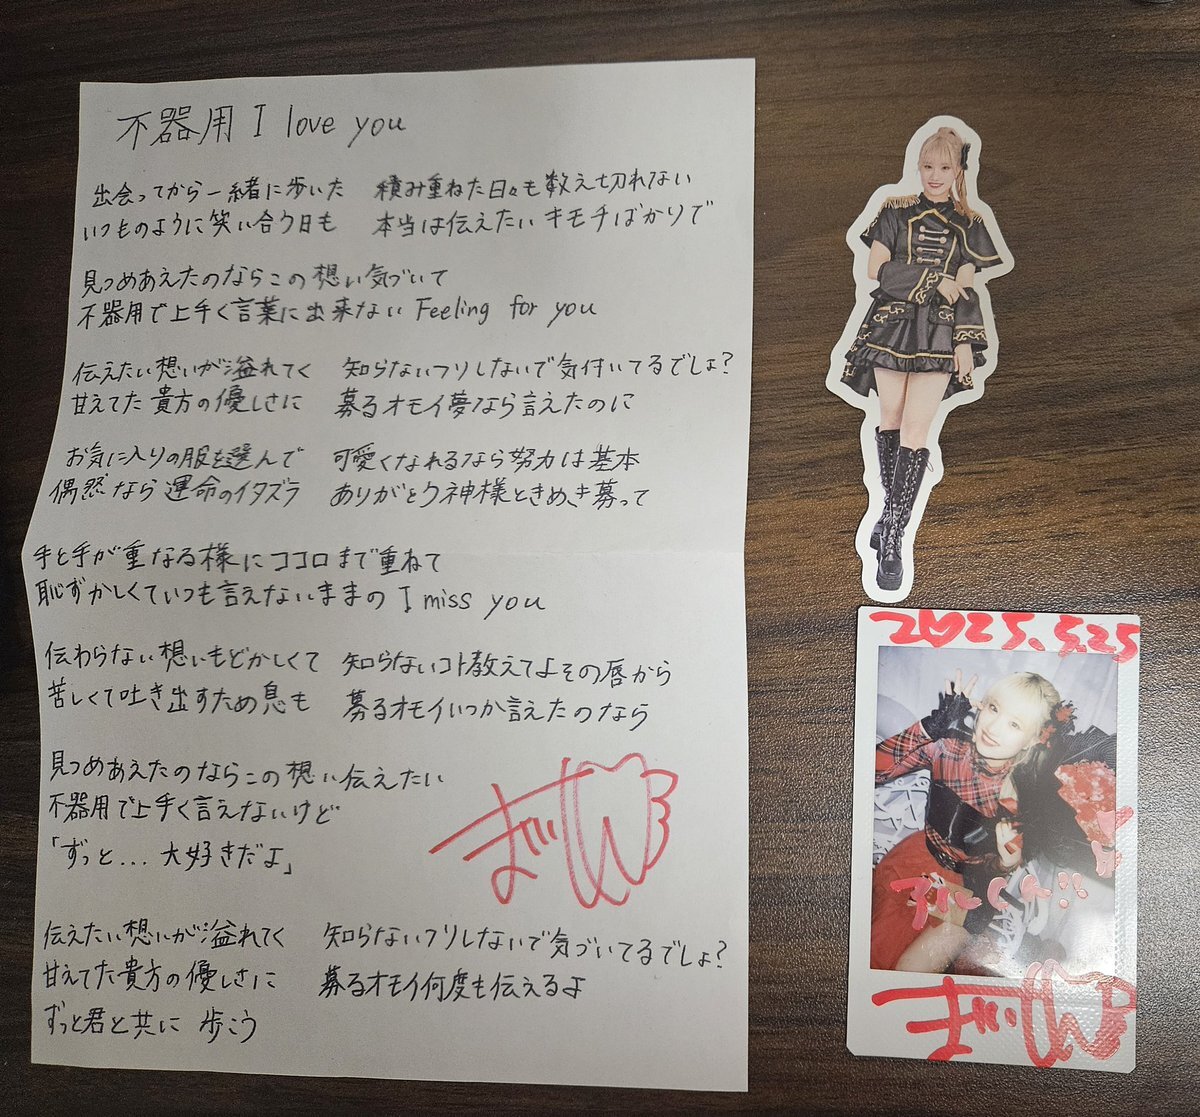 不器用 I love you
出会ってから一緒に歩いた　積み重ねた日々も数え切れない
いつものように笑い合う日も　本当は伝えたいキモチばかりで
見つめあえたのならこの想い気づいて
不器用で上手く言葉に出来ない Feeling for you
伝えたい想いが溢れてく　知らないフリしないで気付いてるでしょ?
甘えてた貴方の優しさに　募るオモイ夢なら言えたのに
お気に入りの服を選んで　可愛くなれるなら努力は基本
偶然なら運命のイタズラ　ありがとう神様ときめき募って
手と手が重なる様にココロまで重ねて
恥ずかしくていつも言えないままの I miss you
伝わらない想いもどかしくて　知らないコト教えてよその唇から
苦しくて吐き出すため息も　募るオモイいつか言えたのなら
見つめあえたのならこの想い伝えたい
不器用で上手く言えないけど
「ずっと... 大好きだよ」
伝えたい想いが溢れてく　知らないフリしないで気づいてるでしょ?
甘えてた貴方の優しさに　募るオモイ何度も伝えるよ
ずっと君と共に 歩こう
2025.5.25